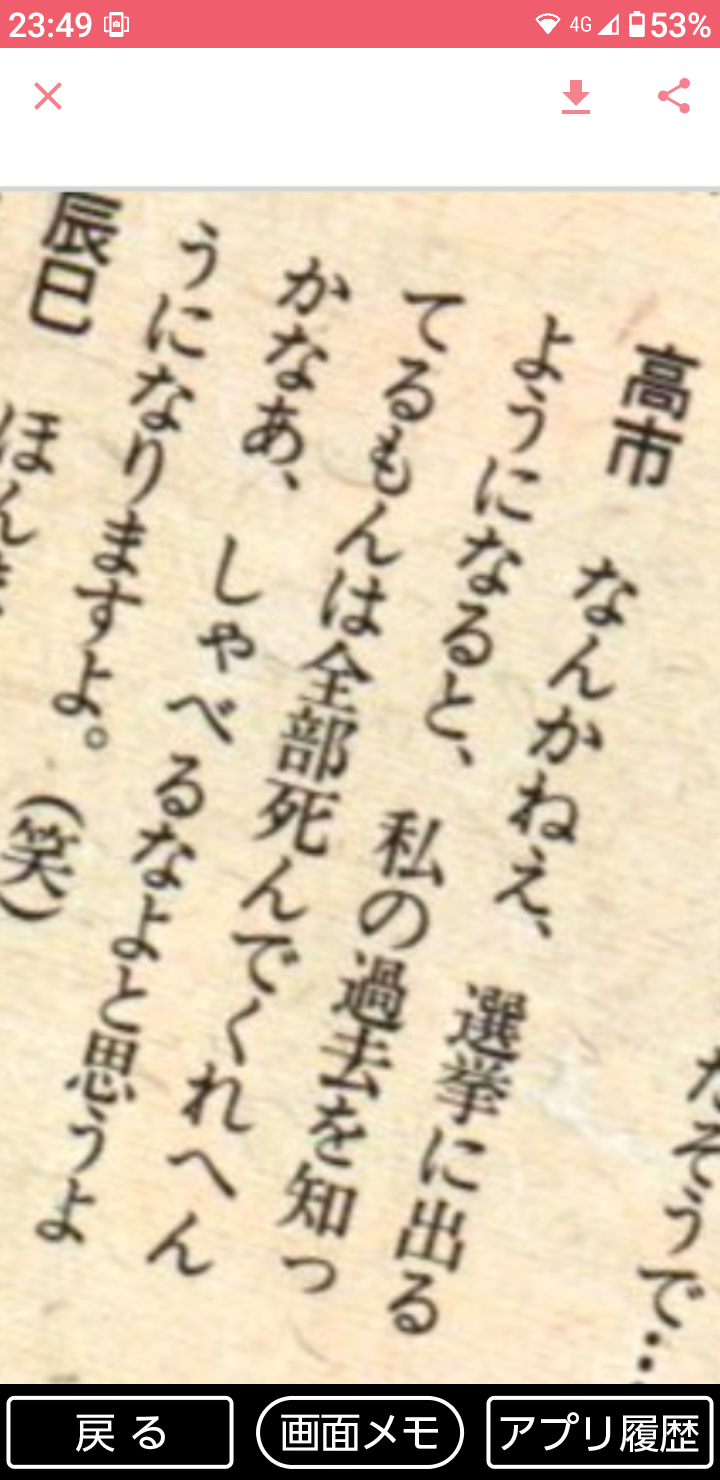 23:49
4G
53%
たそうで…
高市　なんかねえ、選挙に出る
ようになると、私の過去を知っ
てるもんは全部死んでくれへん
かなあ、しゃべるなよと思うよ
うになりますよ。(笑)
辰巳　ほんま
戻る
画面メモ
アプリ履歴